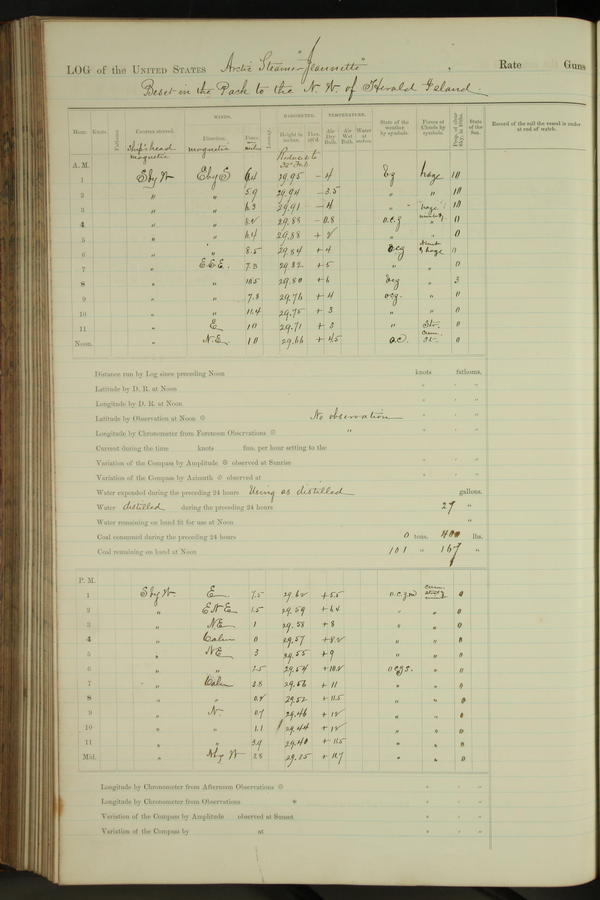 LOG of the UNITED STATES Arctic Steamer "Jeannette" Rate Guns
Beset in the Pack to the N. W. of Herald Island.
WINDS. BAROMETER. TEMPERATURE.
Hour. Knots. Fathoms. Courses steered. Direction. Force. Leeway. Height in inches. Ther. att'd. Air Dry Bulb. Air Wet Bulb. Water at surface. State of the weather by symbols. Forms of Clouds by symbols. Prop. of clear sky in 10ths. State of the Sea. Record of the sail the vessel is under at end of watch.
Ship's head magnetic magnetic miles Reduced to 32° Fah.
A. M.
1 S by W E by S 29.95 -4 bg haze 10
2 " " 5.9 29.94 -3.5 " " 10
3 " " 6.3 29.91 -4 " "haze" 10
4 " " 29.88 -0.8 o.c.g " 0
5 " " 6.4 29.88 +2 " " 0
6 " " 8.5 29.84 +4 ocg & haze 0
7 " E.S.E. 7.3 29.82 +5 " " 0
8 " " 10.5 29.80 +6 " 3
9 " " 7.3 29.76 +4 " 0
10 " " 11.4 29.75 +3 " " 0
11 " E 10 29.71 +3 " Str. 0
Noon. " N.E. 10 29.66 +4.5 o.c. Cum. St. 0
Distance run by Log since preceding Noon knots fathoms.
Latitude by D. R. at Noon " " "
Longitude by D. R. at Noon " " "
Latitude by Observation at Noon No observation " " "
Longitude by Chronometer from Forenoon Observations " " " "
Current during the time knots fms. per hour setting to the
Variation of the Compass by Amplitude observed at Sunrise " " "
Variation of the Compass by Azimuth observed at " " "
Water expended during the preceding 24 hours Using as distilled gallons.
Water distilled during the preceding 24 hours 27 "
Water remaining on hand fit for use at Noon "
Coal consumed during the preceding 24 hours 0 tons, 400 lbs.
Coal remaining on hand at Noon 101 " 167 "
P. M.
1 S by W E 7.5 29.62 +5.5 0
2 " E N E 1.5 29.59 +6.4 " " 0
3 " N E 1 29.58 +8 " " 0
4 " Calm 0 29.57 +8.2 " " 0
5 " N E 3 29.55 +9 " " 0
6 " " 29.54 +10.2 o c g s. " 0
7 " Calm 29.56 +11 " " 0
8 " " 0.2 29.52 +11.5 " " 0
9 " N. 0.7 29.46 +12 " " 0
10 " " 1.1 29.44 +12 " " 0
11 " " 3.9 29.40 +11.5 " " 0
Mid. " N by W 29.35 +11.7 " " 0
Longitude by Chronometer from Afternoon Observations " " "
Longitude by Chronometer from Observations * " " "
Variation of the Compass by Amplitude observed at Sunset " " "
Variation of the Compass by at " " "